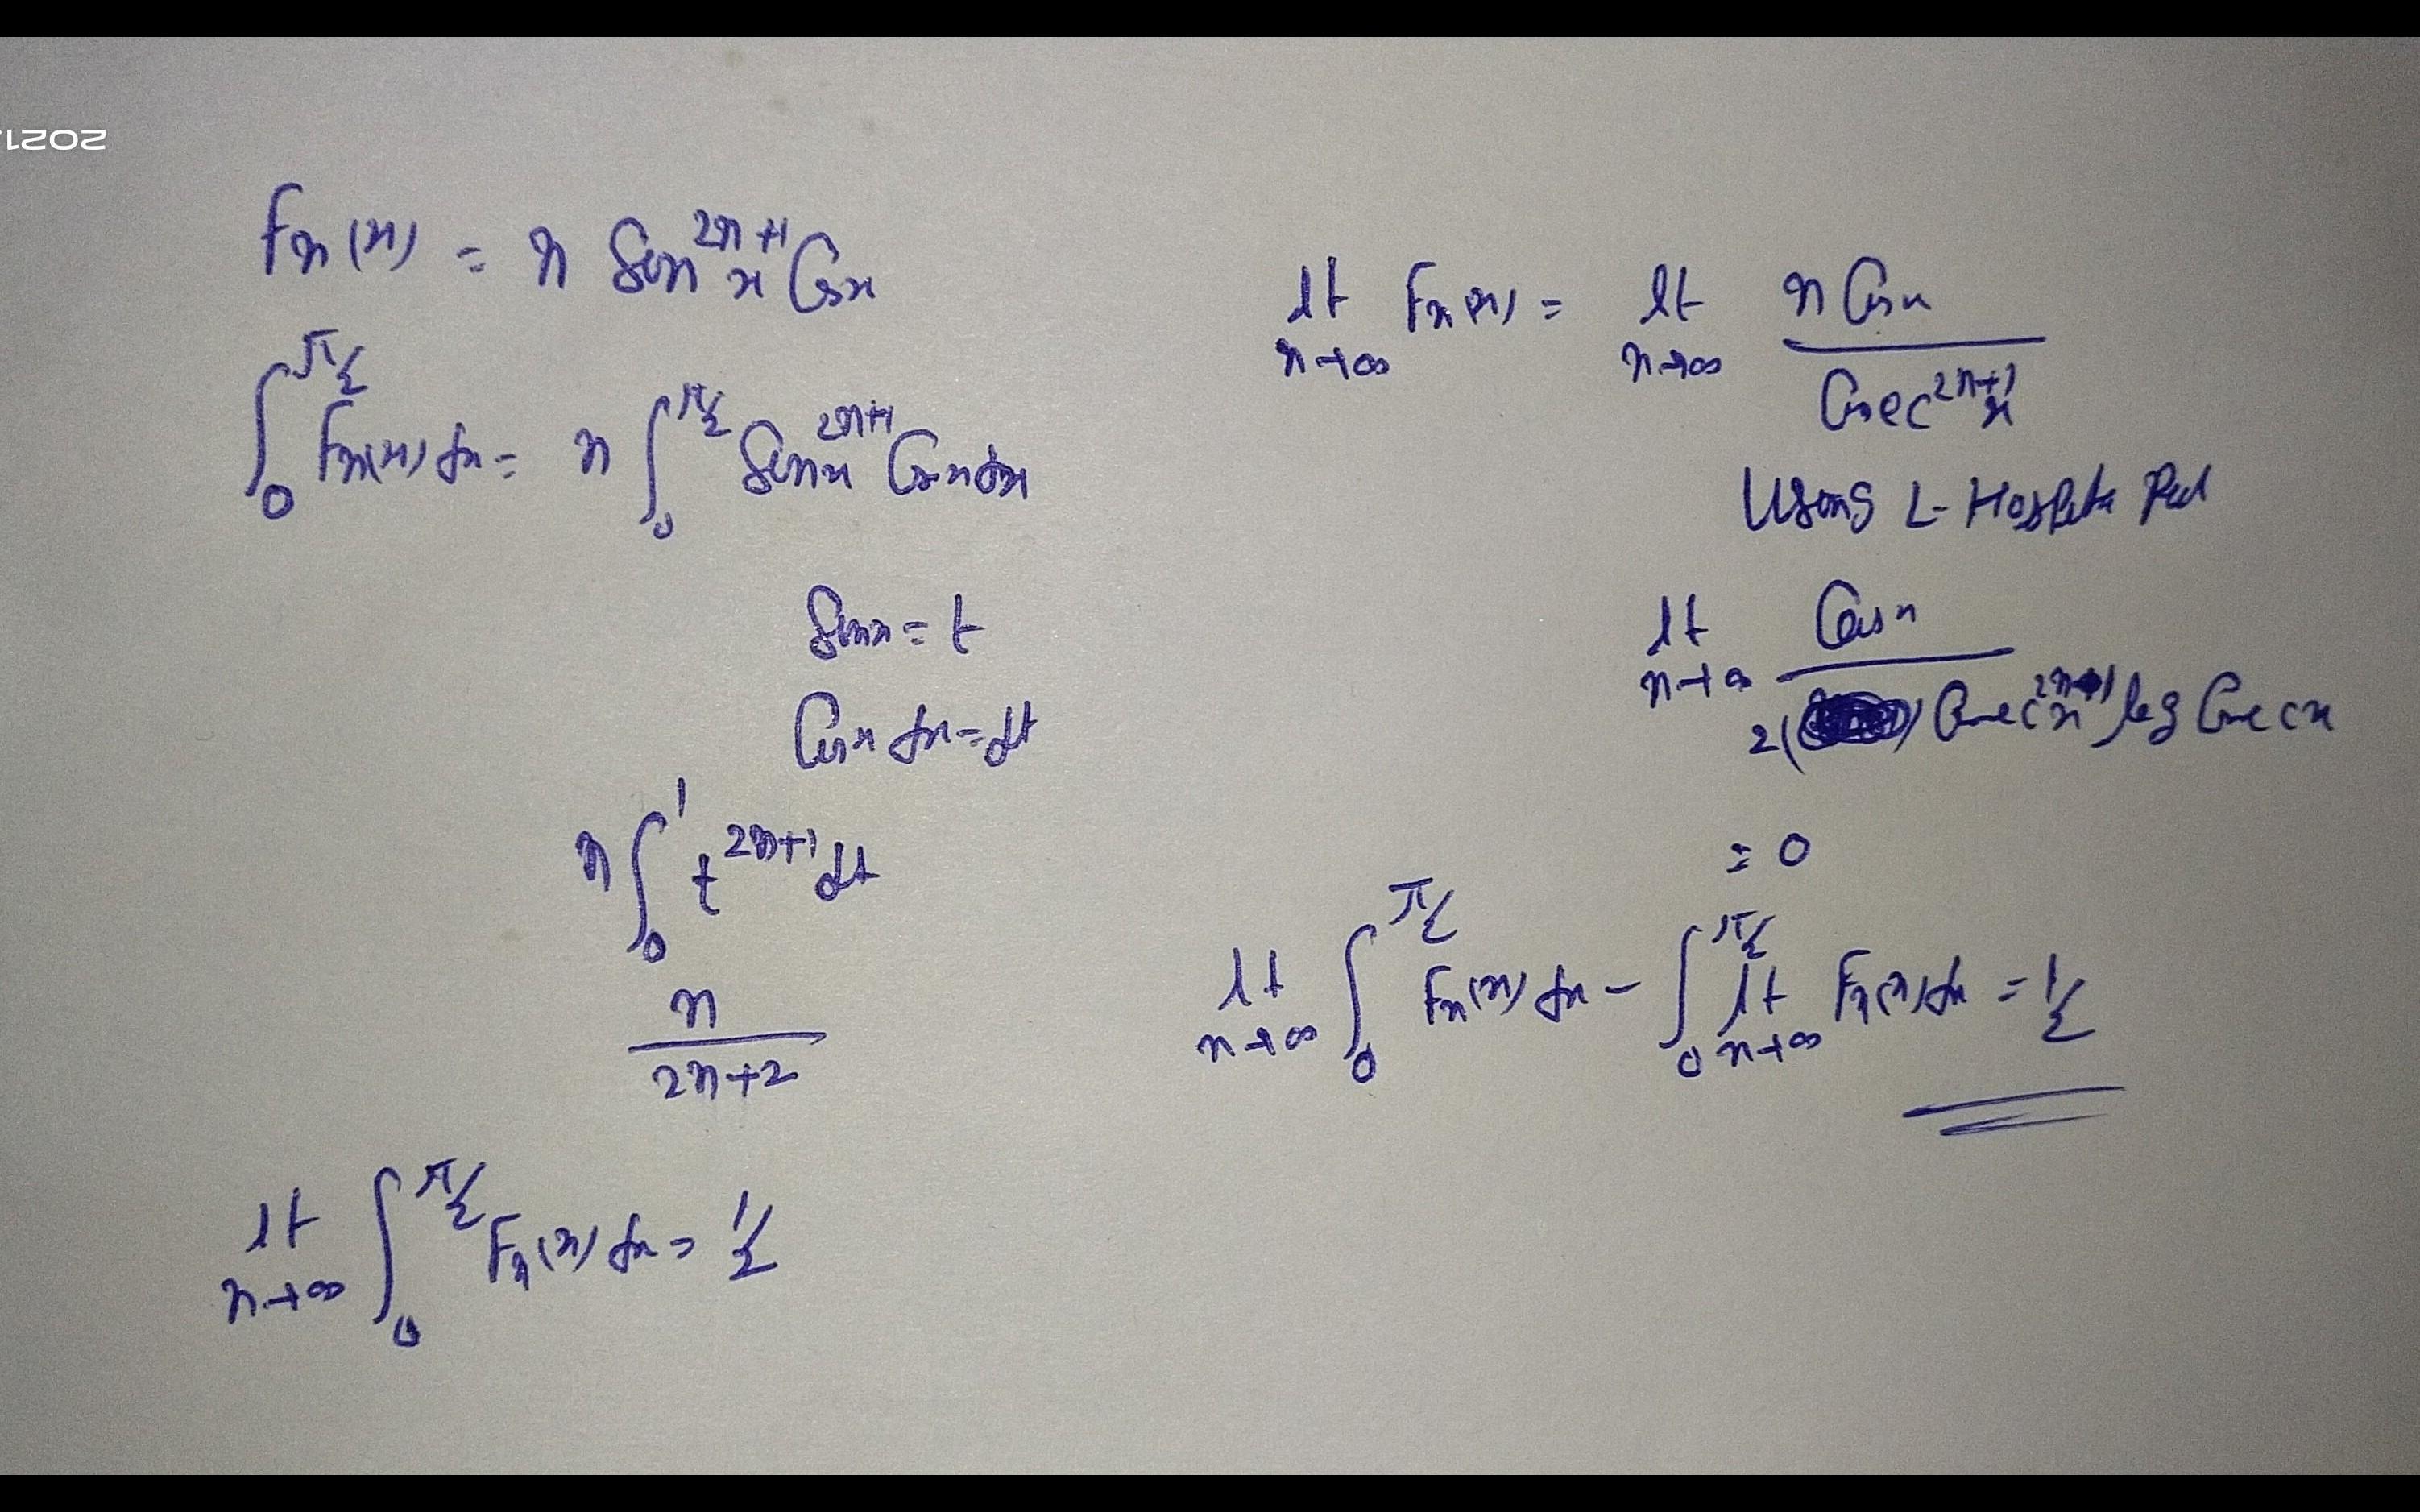 2021
Fn(x) = n Sin^{2n+1} x Cos x
∫_0^{π/2} Fn(x) dx = n ∫_0^{π/2} Sin^{2n+1} x Cos x dx
Sin x = t
Cos x dx = dt
n ∫_0^1 t^{2n+1} dt
n / (2n+2)
lt n→∞ ∫_0^{π/2} Fn(x) dx = 1/2
lt n→∞ Fn(x) = lt n→∞ n Cos x / Cosec^{2n+1} x
Using L-Hospital Rul
lt n→∞ Cos x / 2( ) Cosec^{2n+1} x log Cosec x
= 0
lt n→∞ ∫_0^{π/2} Fn(x) dx - ∫_0^{π/2} lt n→∞ Fn(x) dx = 1/2